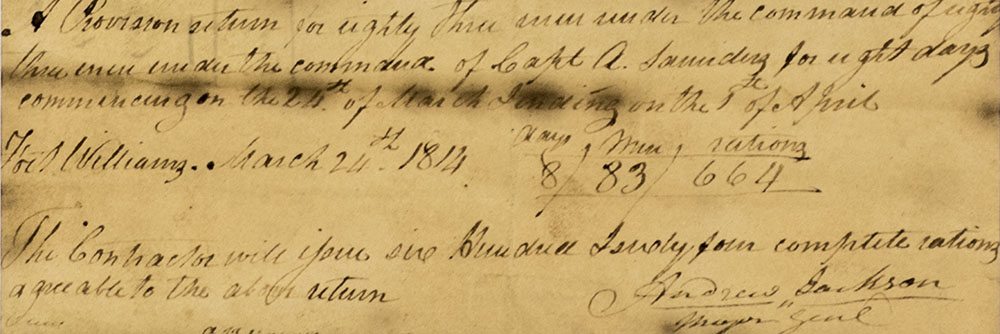 A Provision return for eighty three men under the command of eighty
three men under the command of Capt A. Saunders for eight days
commencing on the 24th of March & ending on the 1st of April
days Men rations
Fort Williams. March 24th 1814
8 / 83 / 664
The Contractor will issue six Hundred & sixty four complete rations
agreeable to the above return
Andrew Jackson
Major Genl